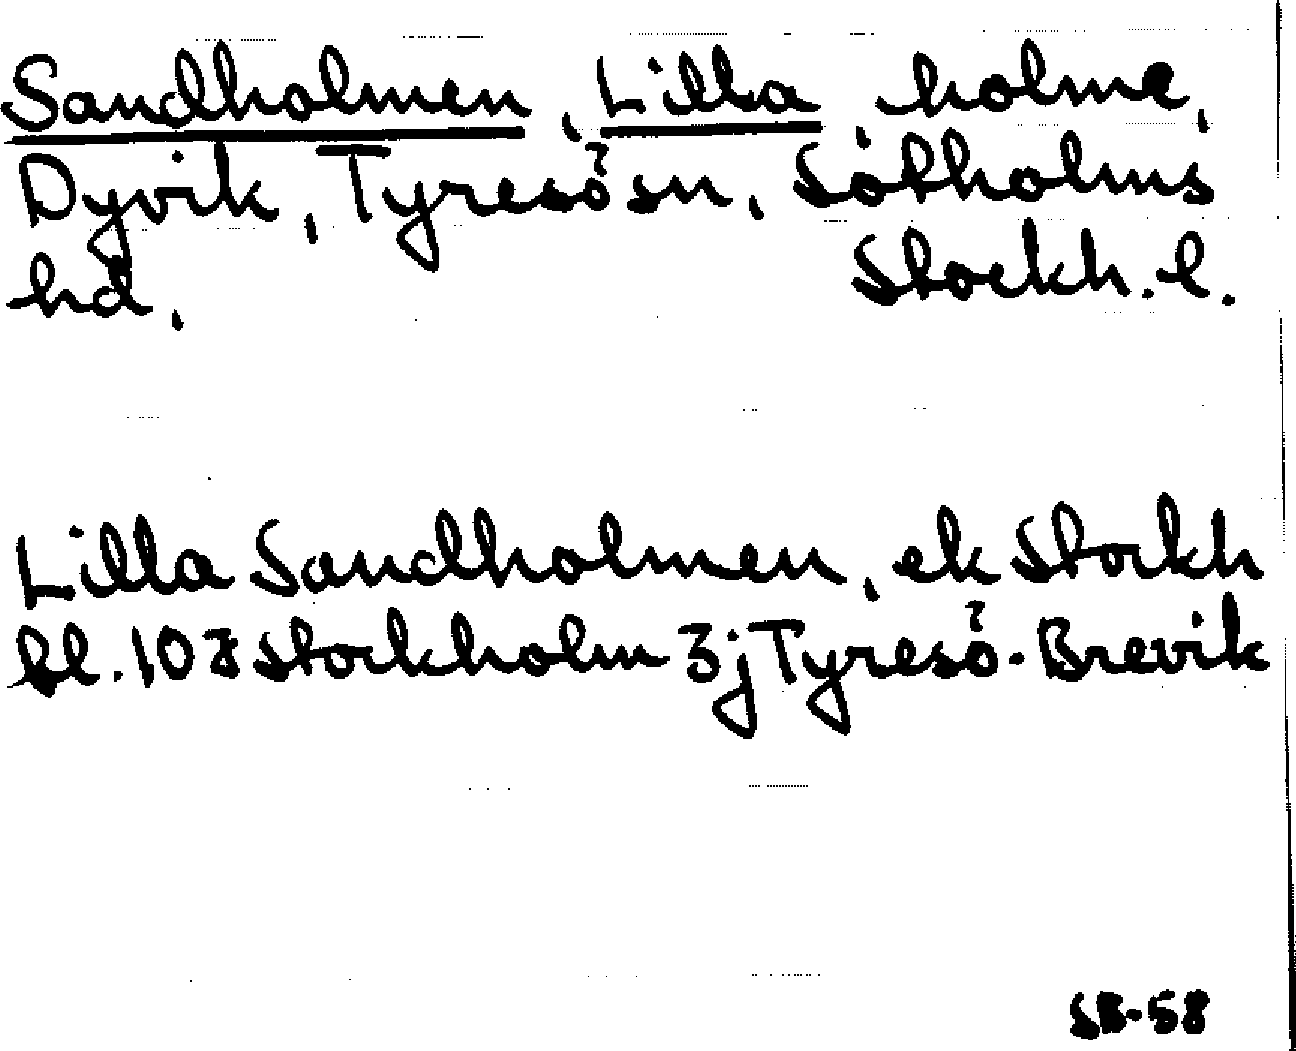 Sandholmen, Lilla, holme,
Dyvik, Tyresö sn, Sotholms
hd. Stockh. l.
Lilla Sandholmen, ek Stockh
bl. 10 7 Stockholm 3j Tyresö-Brevik
SB-58